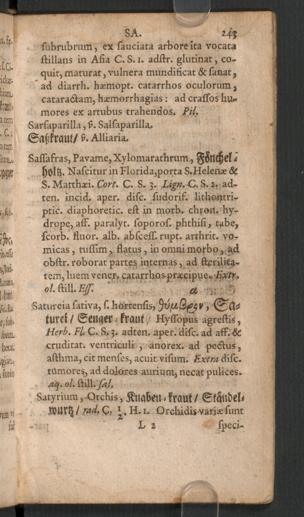 SA. 243
subrubrum, ex sauciata arbore ita vocata
stillans in Asia C. S. 1. adstr. glutinat, co-
quit, maturat, vulnera mundificat & sanat,
ad diarrh. hæmopt. catarrhos oculorum,
cataractam, hæmorrhagias: ad crassos hu-
mores ex artubus trahendos. Pil.
Sarsaparilla, v. Salsaparilla.
Saßkraut / v. Alliaria.
Sassafras, Pavame, Xylomarathrum, Fönchel-
holtz. Nascitur in Florida, porta S. Helenæ &
S. Matthæi. Cort. C. S. 3. Lign. C. S. 2. ad-
ten. incid. aper. disc. sudorif. lithontri-
ptic. diaphoretic. est in morb. chron. hy-
drope, aff. paralyt. soporos. phthisi, tabe,
scorb. fluor. alb. abscess. rupt. arthrit. vo-
micas, tussim, flatus, in omni morbo, ad
obstr. roborat partes internas, ad sterilita-
tem, luem vener. catarrhos præcipue. Extr.
ol. still. Ess.
Satureia sativa, s. hortensis, θύμβρον, Sa-
turei / Senger-kraut / Hyssopus agrestis,
Herb. Fl. C. S. 3. adten. aper. disc. ad aff. &
cruditat. ventriculi, anorex. ad pectus,
asthma, cit menses, acuit visum. Extra disc.
tumores, ad dolores aurium, necat pulices.
aq. ol. still. sal.
Satyrium, Orchis, Knaben-kraut / Ständel-
wurtz / rad. C. 1/2. H. 1. Orchidis variæ sunt
L 2 speci-